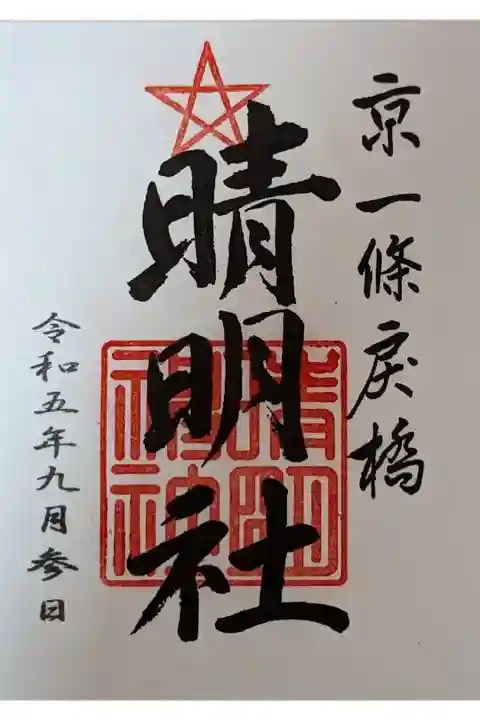 京一條戻橋
晴明社
晴明
神社
令和五年九月参日